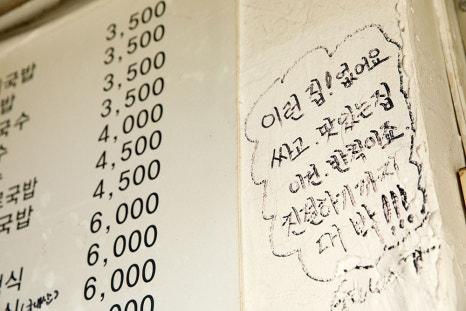 3,500
3,500
3,500
3,500
4,000
4,500
4,500
6,000
6,000
6,000
국밥
밥
국수
수
국밥
국밥
식
식 (국내산)
이런 집! 없어요
싸고. 맛있는집
이런.
친절하기까지
대박!!!